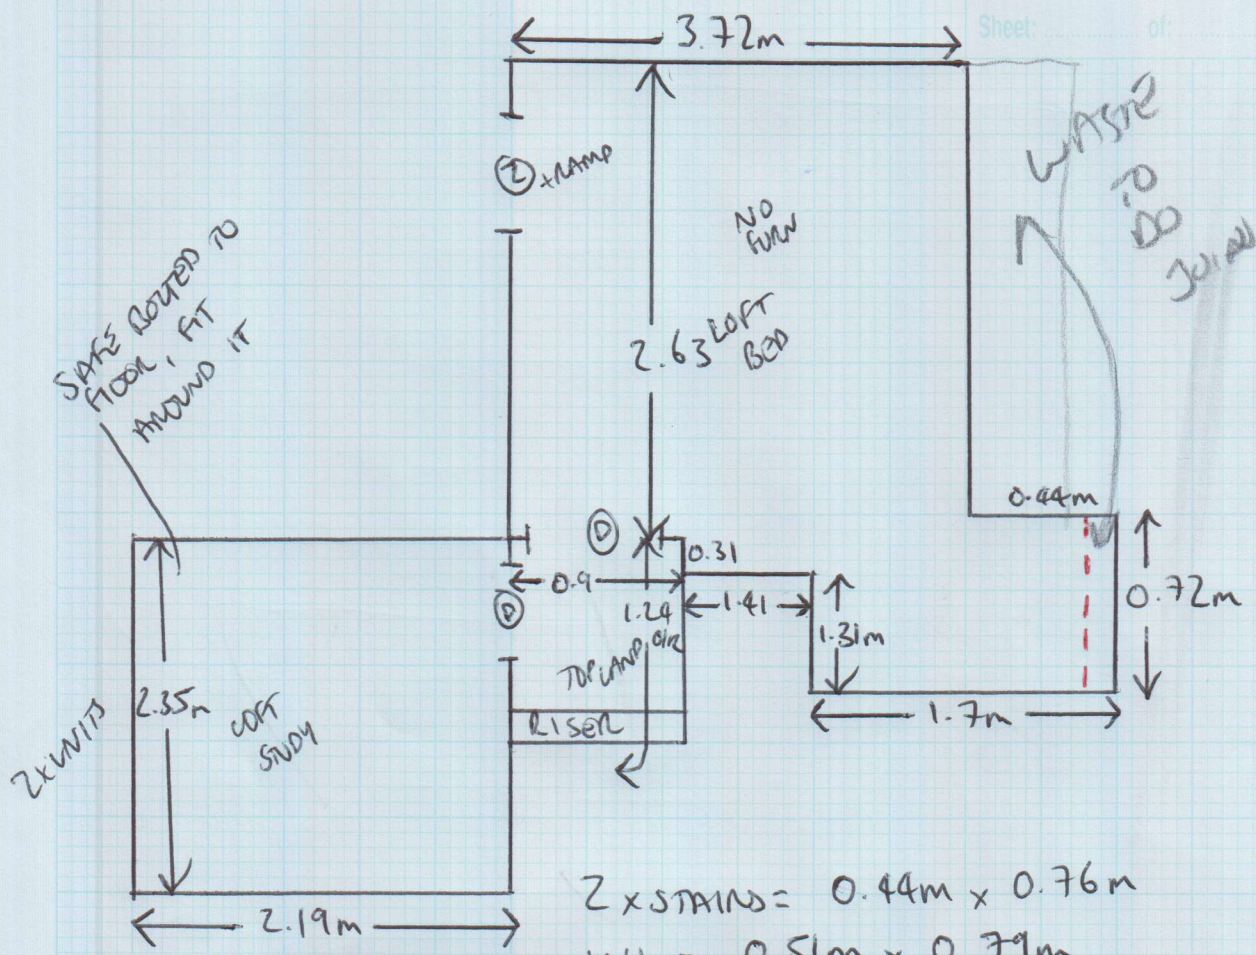 Sheet: of:
3.72m
WASTE
TO
DO
2 +RAMP
NO
FURN
SAFE BOLTED TO
FLOOR, FIT
AROUND IT
2.63
LOFT
BED
0.44m
D
0.31
0.9
D
1.24
1.41
1.31m
0.72m
TOP LAND
RISER
1.7m
2 x UNITS
2.35m
LOFT
STUDY
2.19m
2 x STAIRS = 0.44m x 0.76m
0.51m x 0.79m